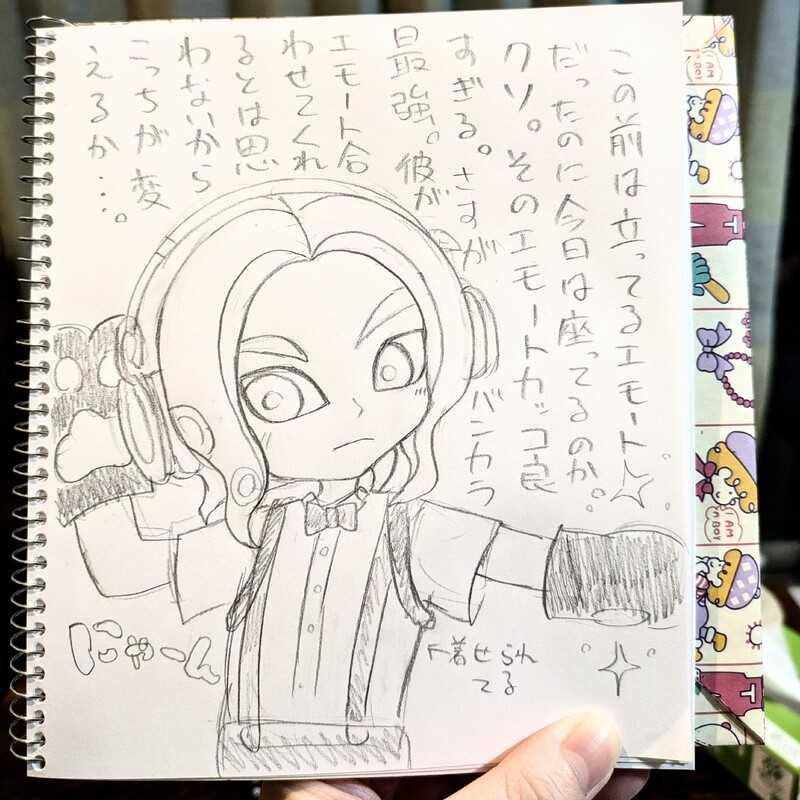 この前は立ってるエモート
だったのに今日は座ってるのか。
クソ。そのエモートカッコ良
すぎる。さすがバンカラ
最強。彼が
エモート合
わせてくれ
るとは思
わないから
こっちが変
えるか…。
にゃーん
着せられ
てる
I AM
A BOY
I AM
A BOY